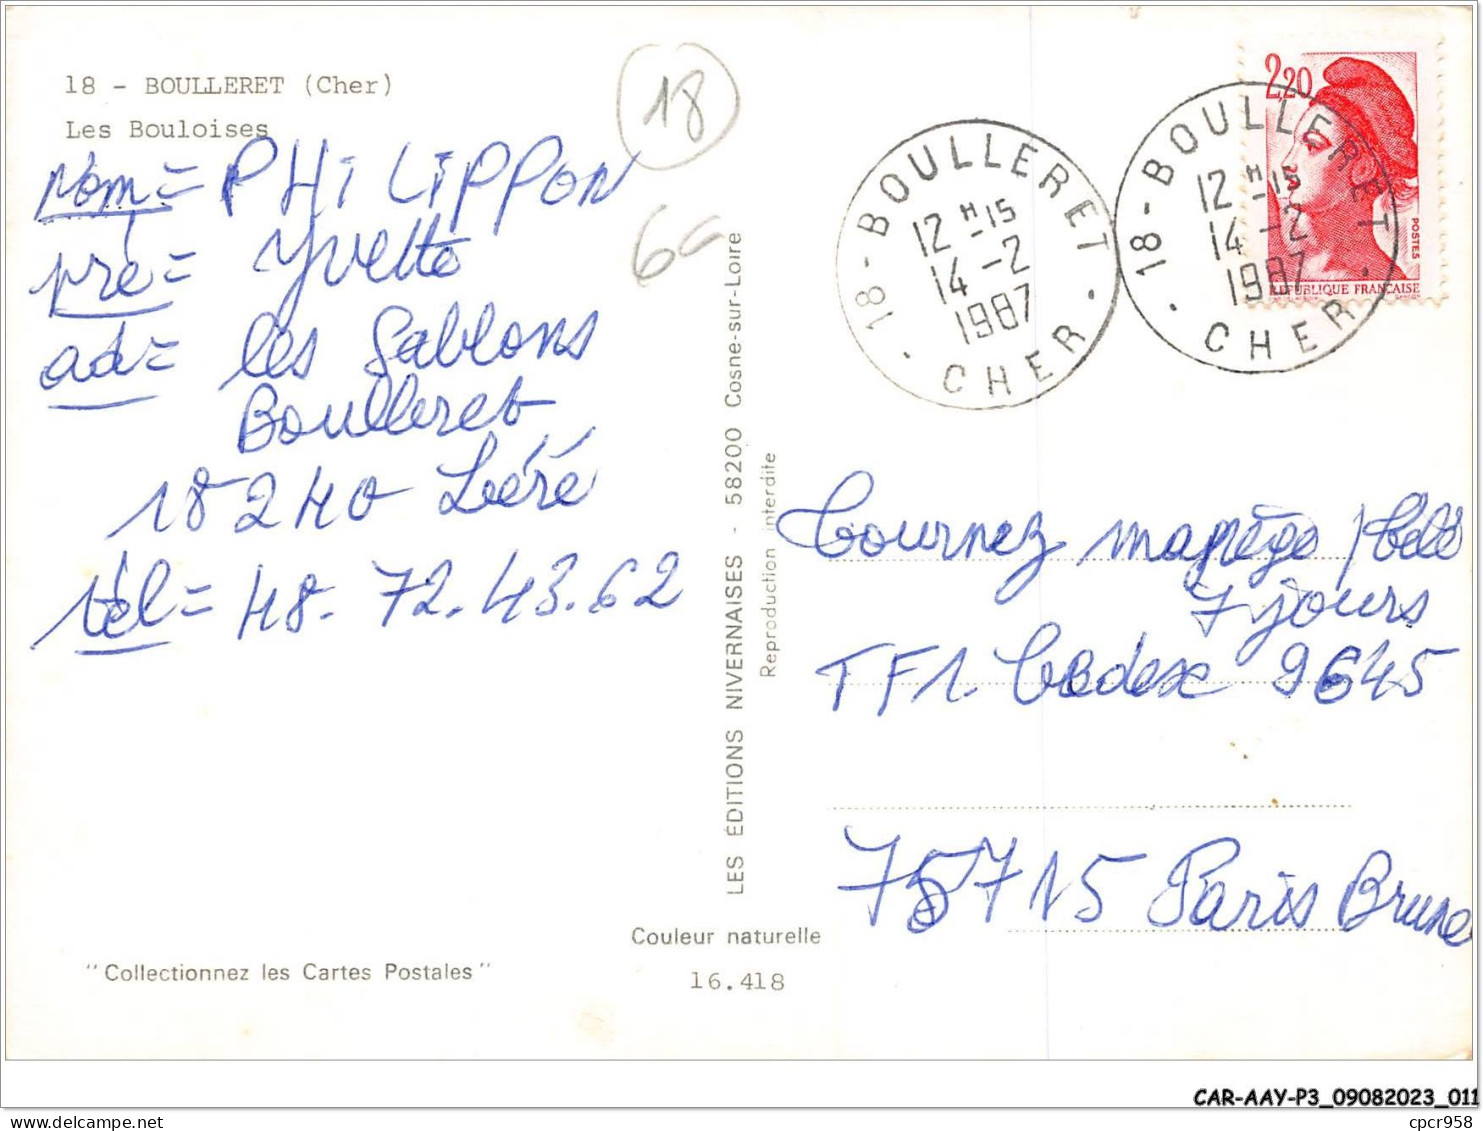 18 - BOULLERET (Cher)
Les Bouloises
18
6€
nom = PHiLiPPON
pré = Yvette
ad = les Sablons
Boulleret
18240 Léré
tél = 48. 72. 43. 62
LES ÉDITIONS NIVERNAISES - 58200 Cosne-sur-Loire
Reproduction interdite
Couleur naturelle
16.418
"Collectionnez les Cartes Postales"
18 - BOULLERET
12 H 15
14 - 2
1987
CHER
18 - BOULLERET
12 H 15
14 - 2
1987
CHER
2,20
POSTES
REPUBLIQUE FRANÇAISE
Tournez manège / Télé
7 jours
TF1. Cedex 9645
75715 Paris Brune
CAR-AAY-P3_09082023_011
cpcr958